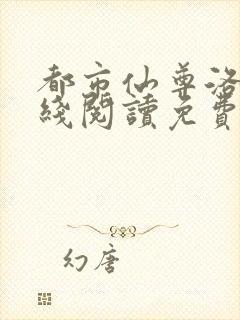 都市仙尊洛
綫閱讀免費
幻唐